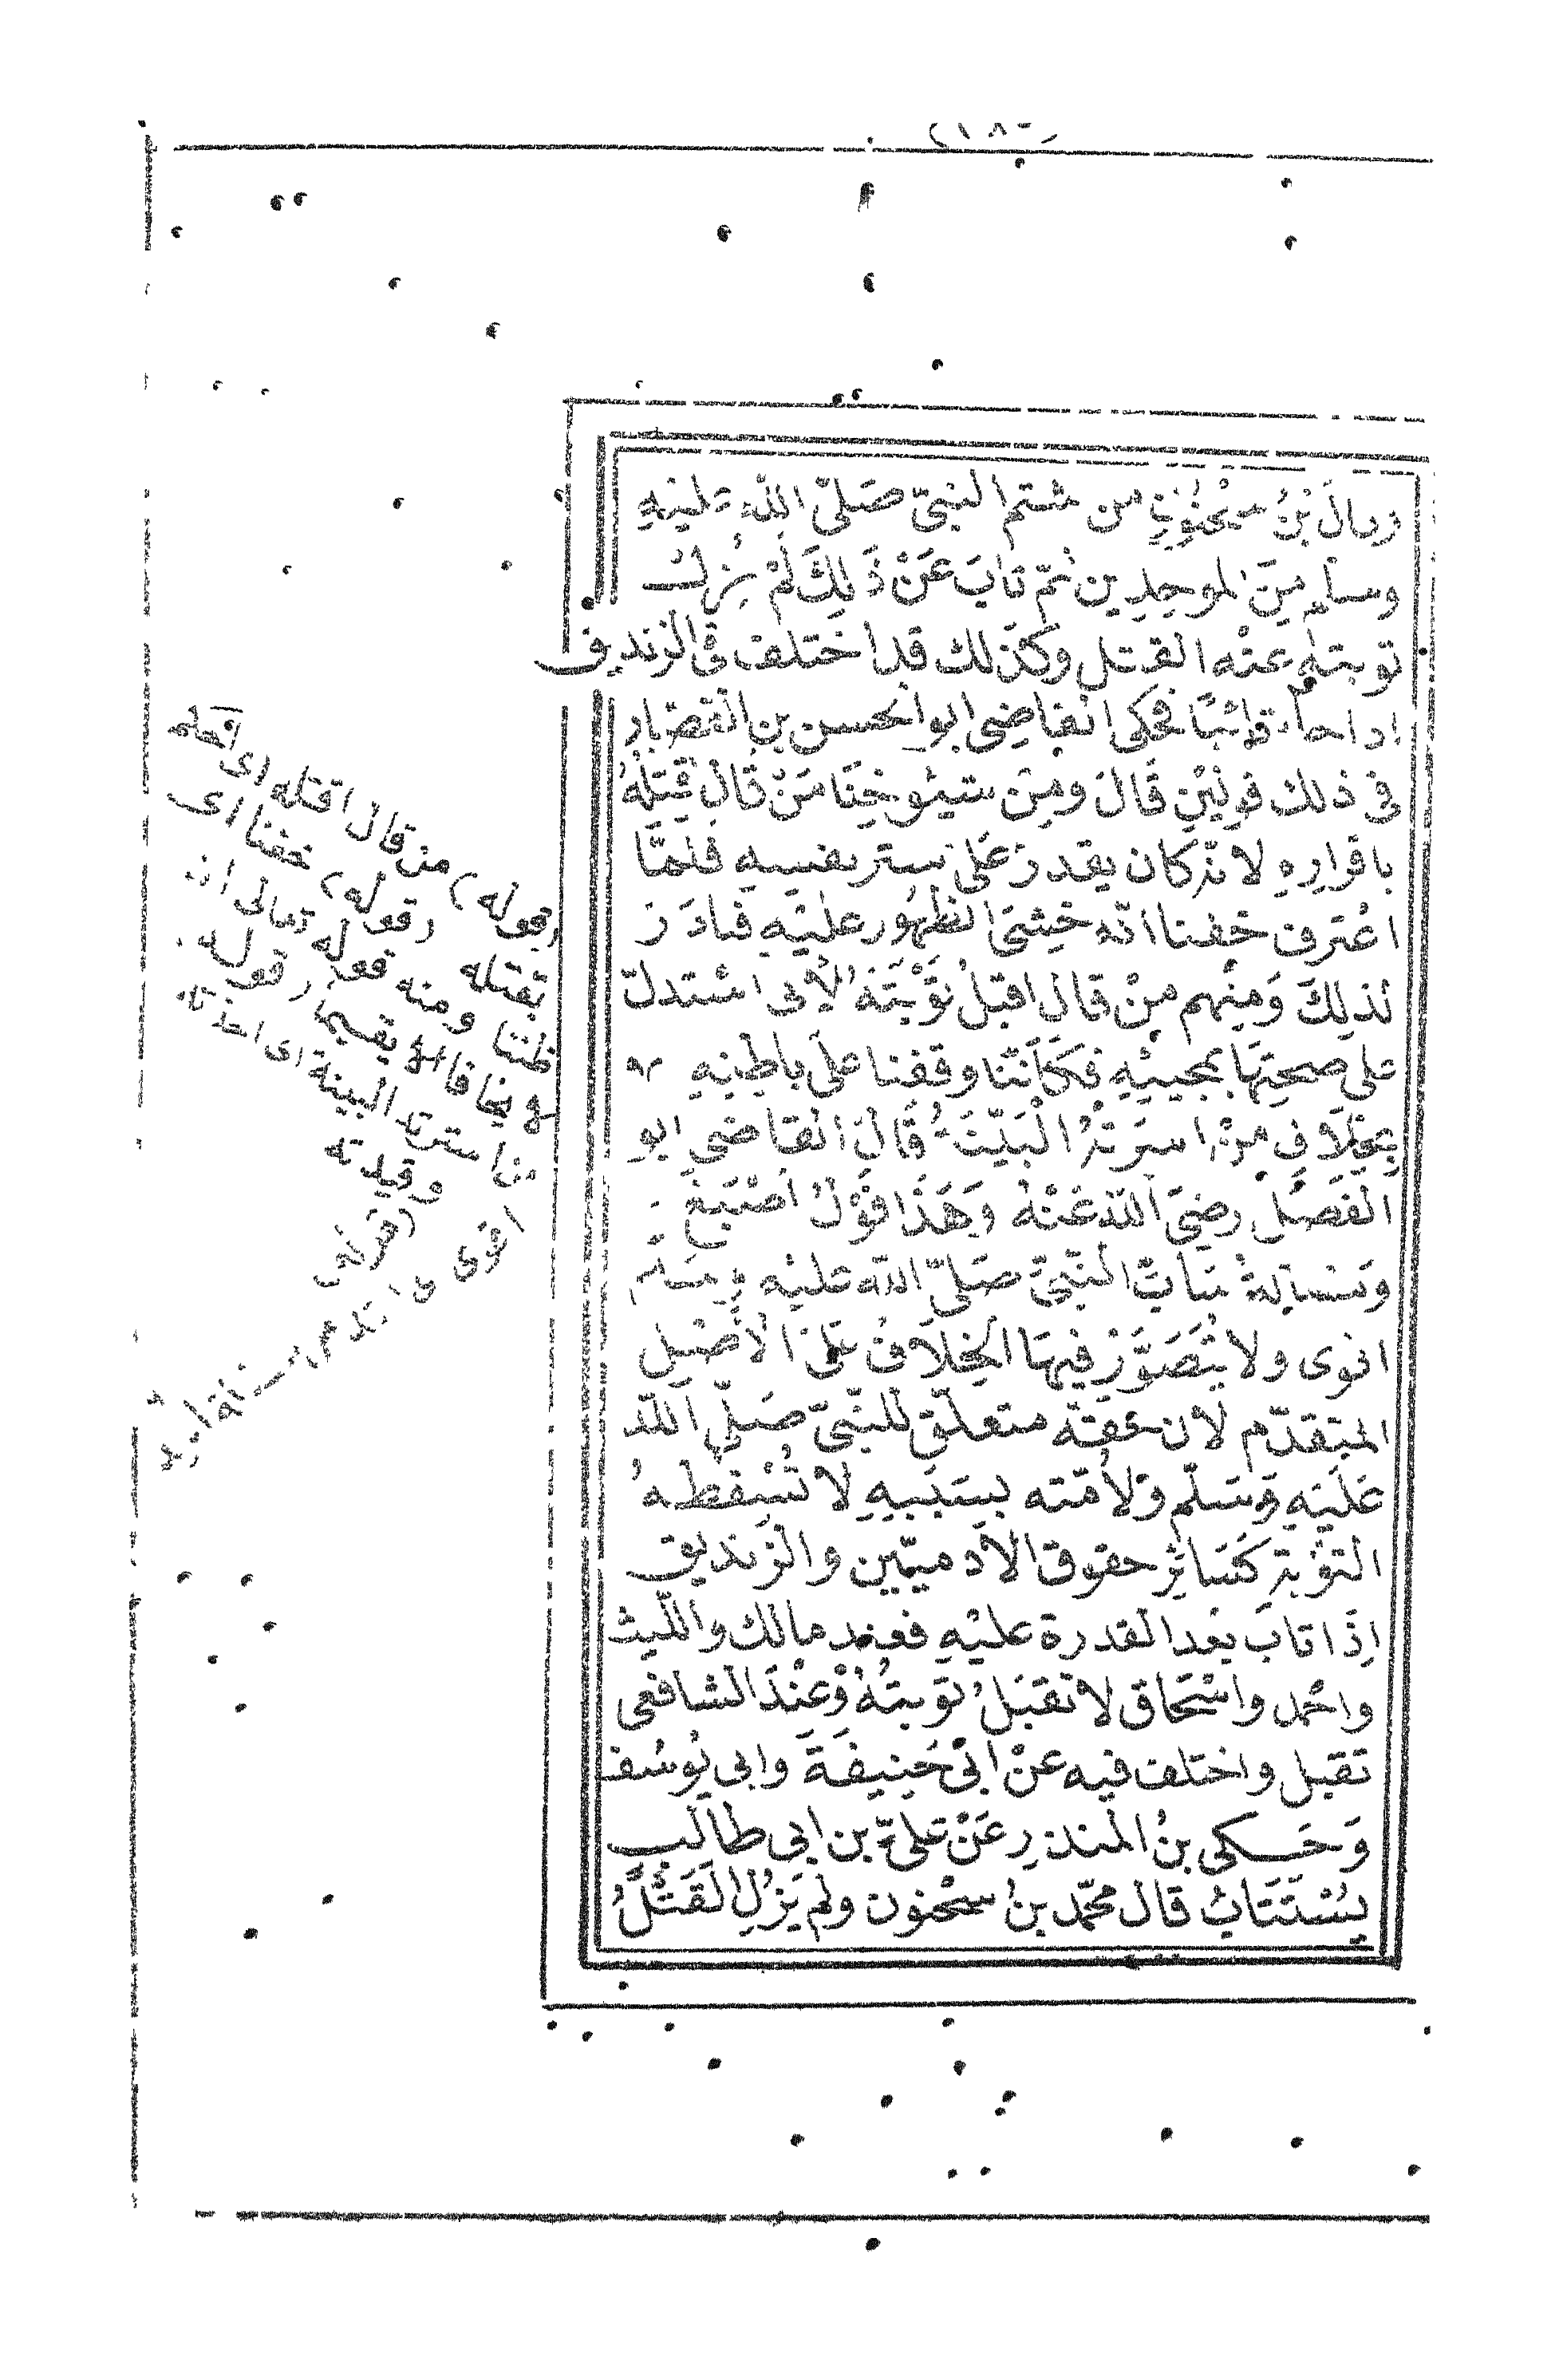 وقال بْنُ سَحْنُونٍ من شتم النبيّ صَلّى اللّه عليْهِ
وسلم مِنَ الموحدين ثم تابَ عَنْ ذَلِكَ لَمْ يُزِلْ
توبته عنْه القتل وكذلك قد اختلف في الزنديق
اذا جاء تائبًا فحكى القاضِى ابو الحسن بن القصّار
في ذلك قولَيْنِ قَالَ ومِنْ شيُوخِنَا مَنْ قَالَ اقتله
باقرارِهِ لانّه كان يقدر عَلى ستر نفسِهِ فَلَمَّا
اعْترف خفنا انّه خشىَ الظهُور عليْهِ فبادَرَ
لذلِكَ وَمنهم مَنْ قال اقبَلُ تَوْبَتَهُ لأنى استدلّ
على صحتِهَا بمجيئِهِ فكَأنّنا وقفنا علَى باطِنِهِ
بخِلاَفِ مَنْ اسَرَتْهُ الْبَيّنَةُ قَالَ القاضى ابو
الفَضْلِ رضِىَ اللّه عَنْهُ وَهَذَا قَوْلُ اَصْبَغَ
وَمَسْألةُ سَابّ النّبِىّ صَلىّ اللّه عليْه وسَلم
اقوى ولا يُتَصَوَّرُ فيهَا الخِلاَفُ عَلى الاَصْلِ
المتقدّم لأن حقّه متعلّق للنّبىّ صَلّى اللّه
عَليْهِ وَسَلّم وَلأمّته بسَبَبِهِ لاَ تُسْقِطُهُ
التوْبة كَسَائِرِ حقوق الآدميّين والزّنديق
اِذَا تابَ بَعْد القدرة عليْهِ فعند مالك واللّيث
واحْمد واسْحَاق لا تقبَلُ توبتُهُ وَعنْدَ الشافعى
تقبل واختلف فيه عنْ ابى حَنِيفَةَ وابى يُوسُف
وَحَكى بنُ المنذرِ عَنْ عَلىّ بن ابى طالب
يُسْتَتَابُ قال محمّد بنُ سحْنون ولم يَزُلِ الْقَتْلُ
(قوله) من قال اقتله اى احكم
بقتله وقوله) خفنا اى
ظننا ومنه قوله تعالى الا ان
يخافا الا يقيما وقوله
من اسرته البينة اى اخذته
وقيدته
(قوله)
اقوى